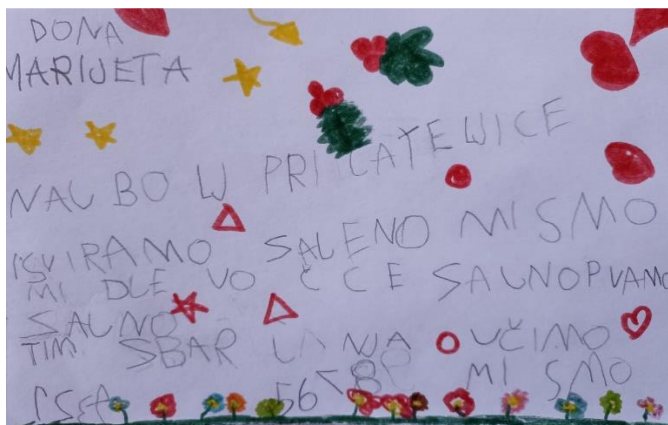 DONA
MARIJETA
NAU BO W PRI CATEWICE
ISVIRAMO SALENO MI SMO
MI DLE VO Č C E SAUNOPVAMO
SAUNO
TIMI SBAR NJA UČIMO
MI SMO